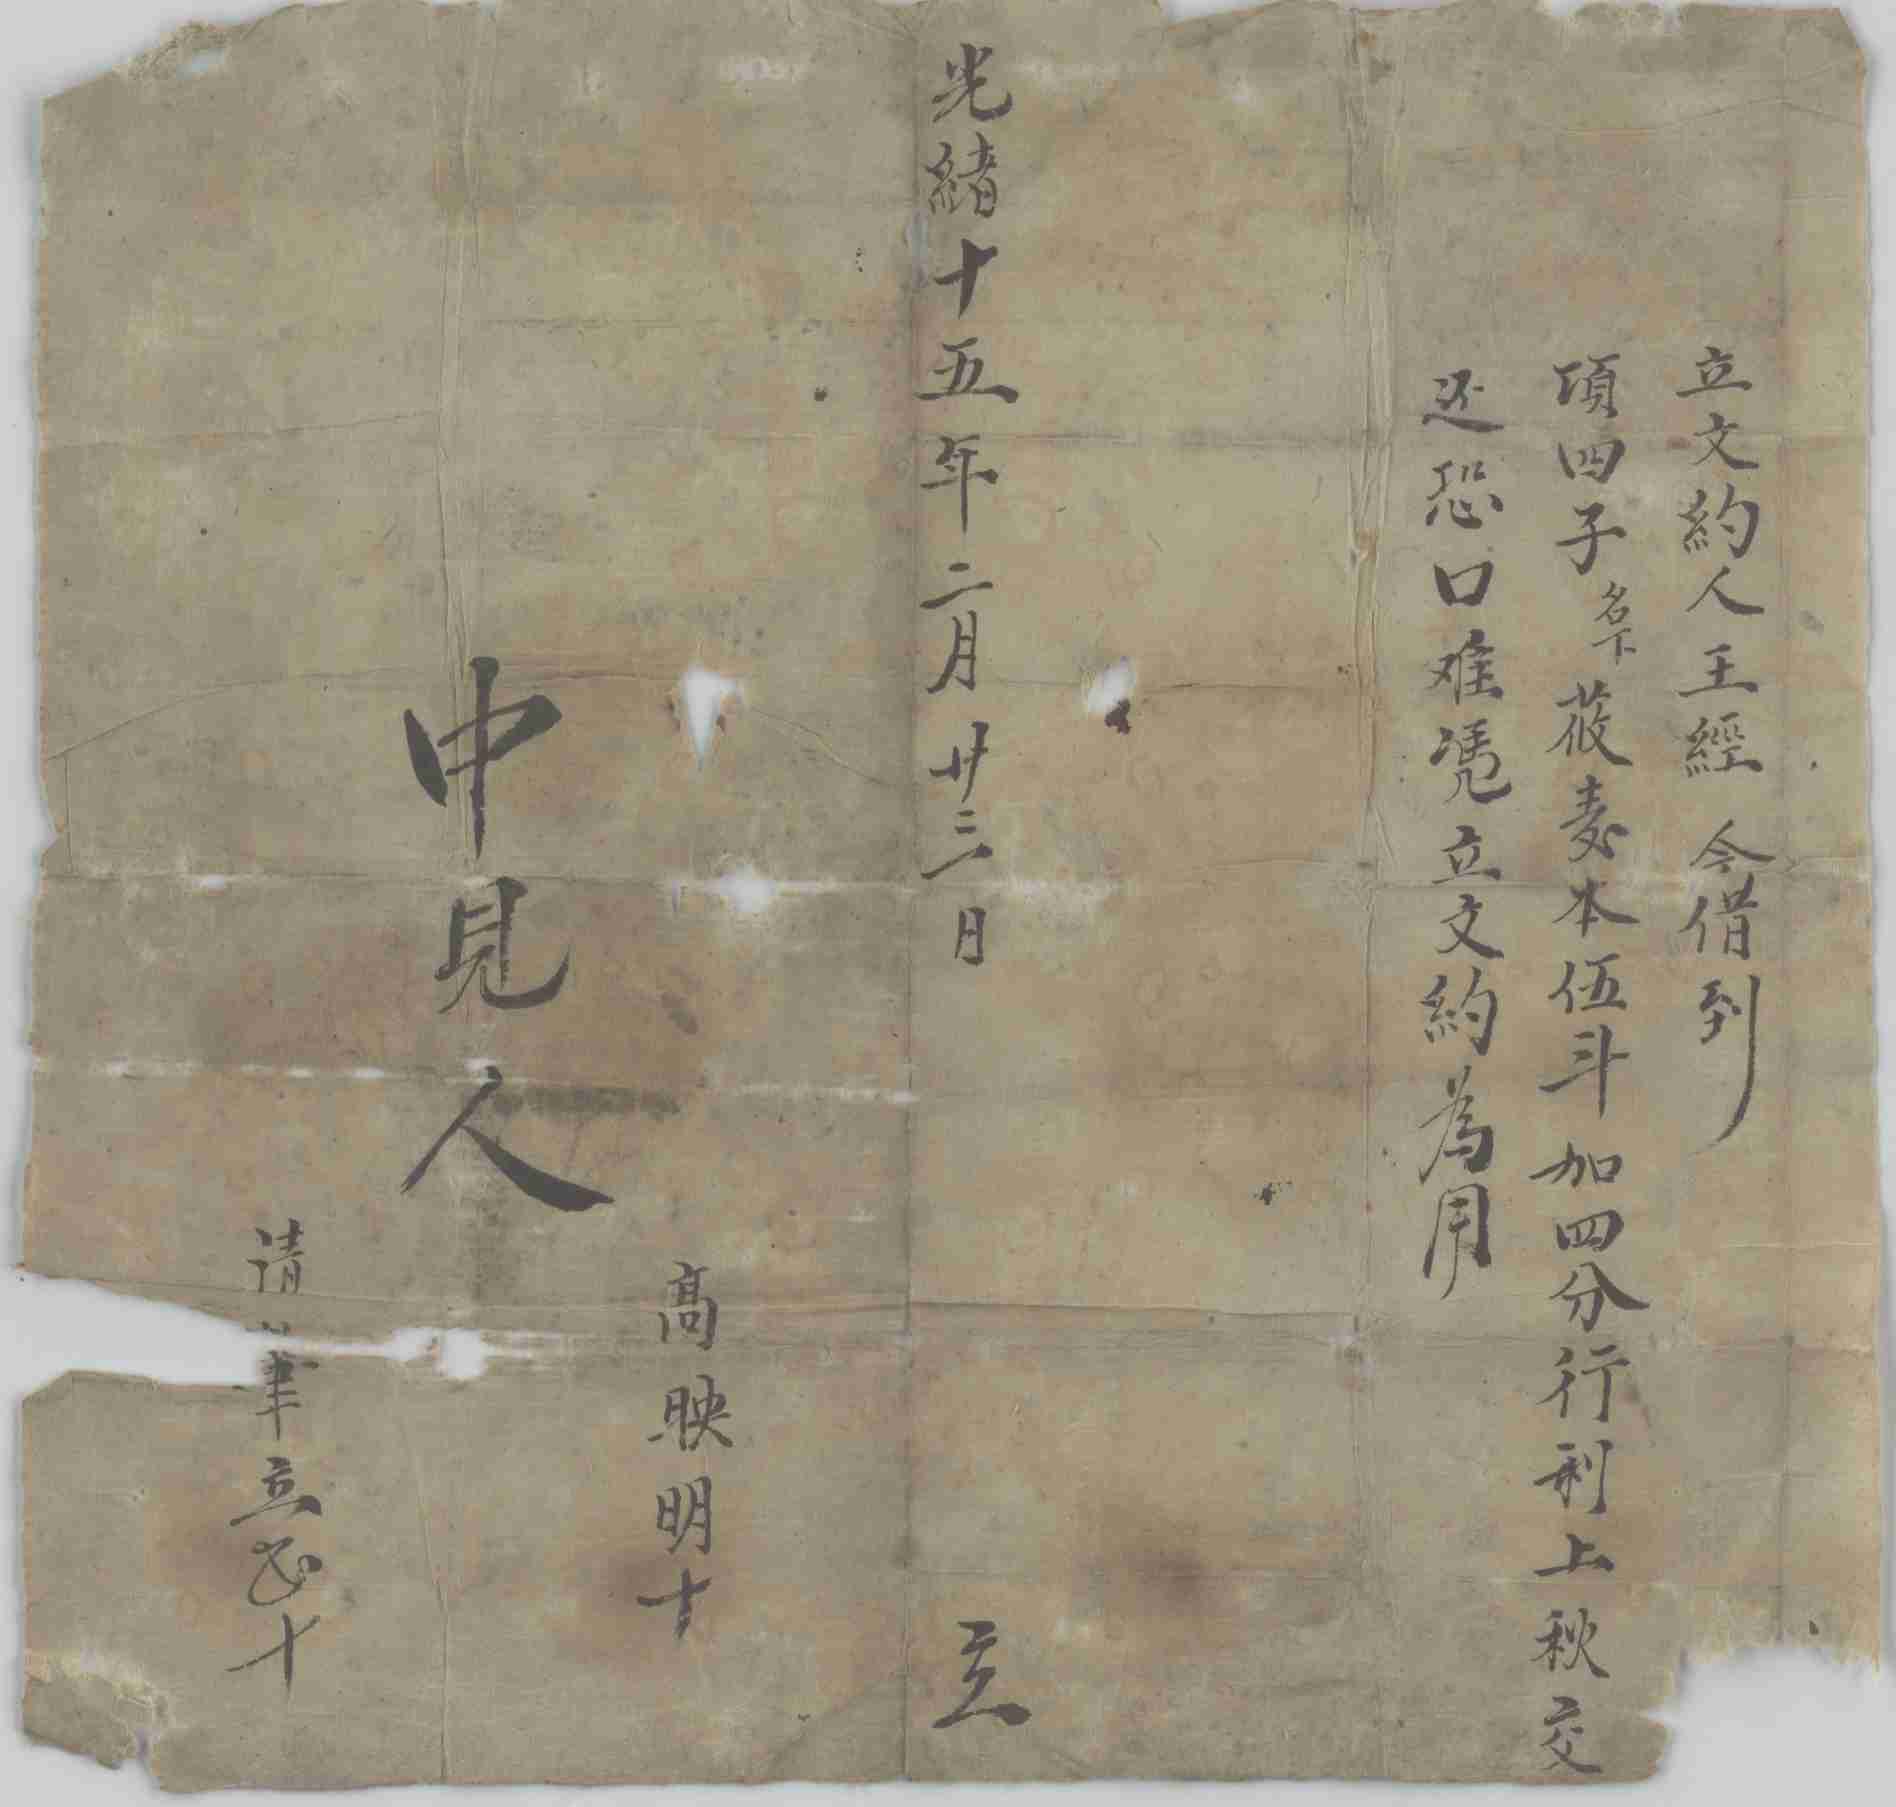 立文約人王經今借到
項四子名下莜麦本伍斗加四分行利上秋交
还恐口难凴立文約為用
光緒十五年二月廿三日 立
高映明十
中見人
请筆立十